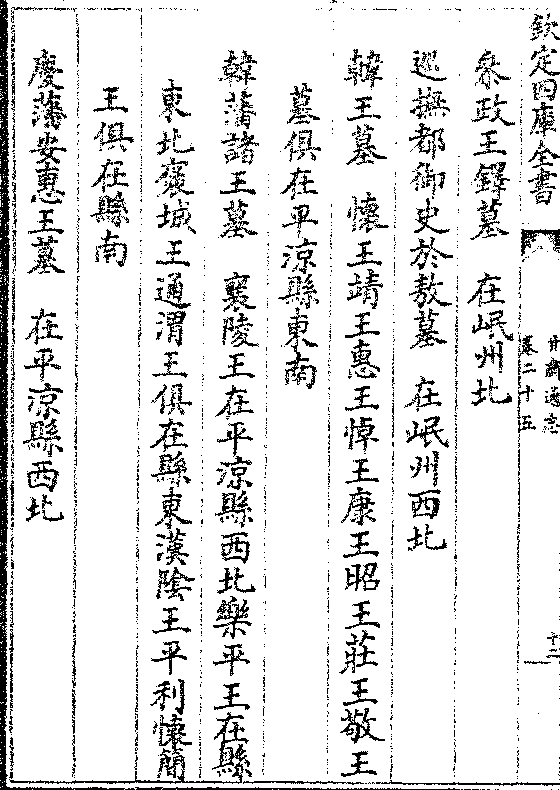 欽定四庫全書
甘肅通志
卷二十五
十二
叅政王鐸墓　在岷州北
巡撫都御史於敖墓　在岷州西北
韓王墓　懷王靖王惠王悼王康王昭王莊王敬王
墓俱在平涼縣東南
韓藩諸王墓　襄陵王在平涼縣西北樂平王在縣
東北褒城王通渭王俱在縣東漢陰王平利懷簡
王俱在縣南
慶藩安惠王墓　在平涼縣西北